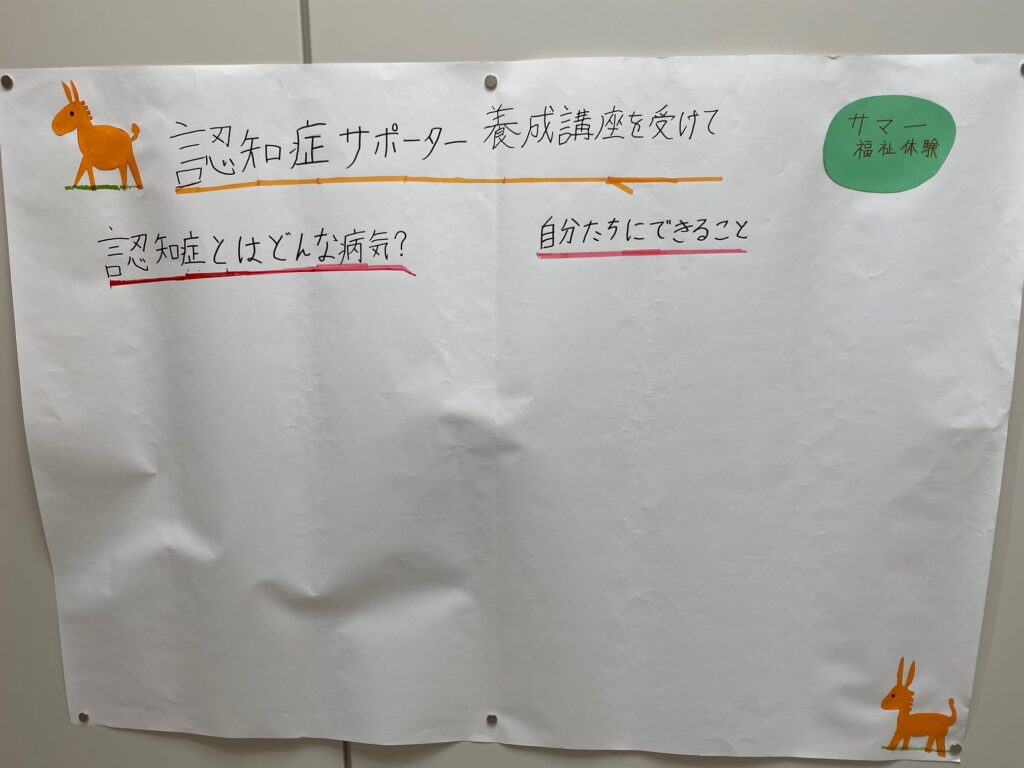 認知症サポーター養成講座を受けて
サマー
福祉体験
認知症とはどんな病気?
自分たちにできること